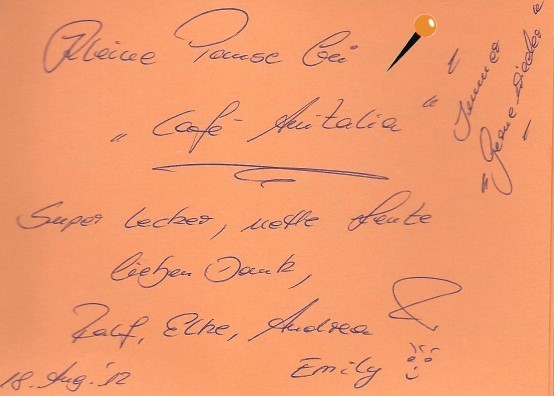 Kleine Pause bei
„Café-Anitalia“
Super lecker, nette Leute
lieben Dank,
Ralf, Elke, Andrea &
Emily
18. Aug. '12
"Immer
Gerne wieder"